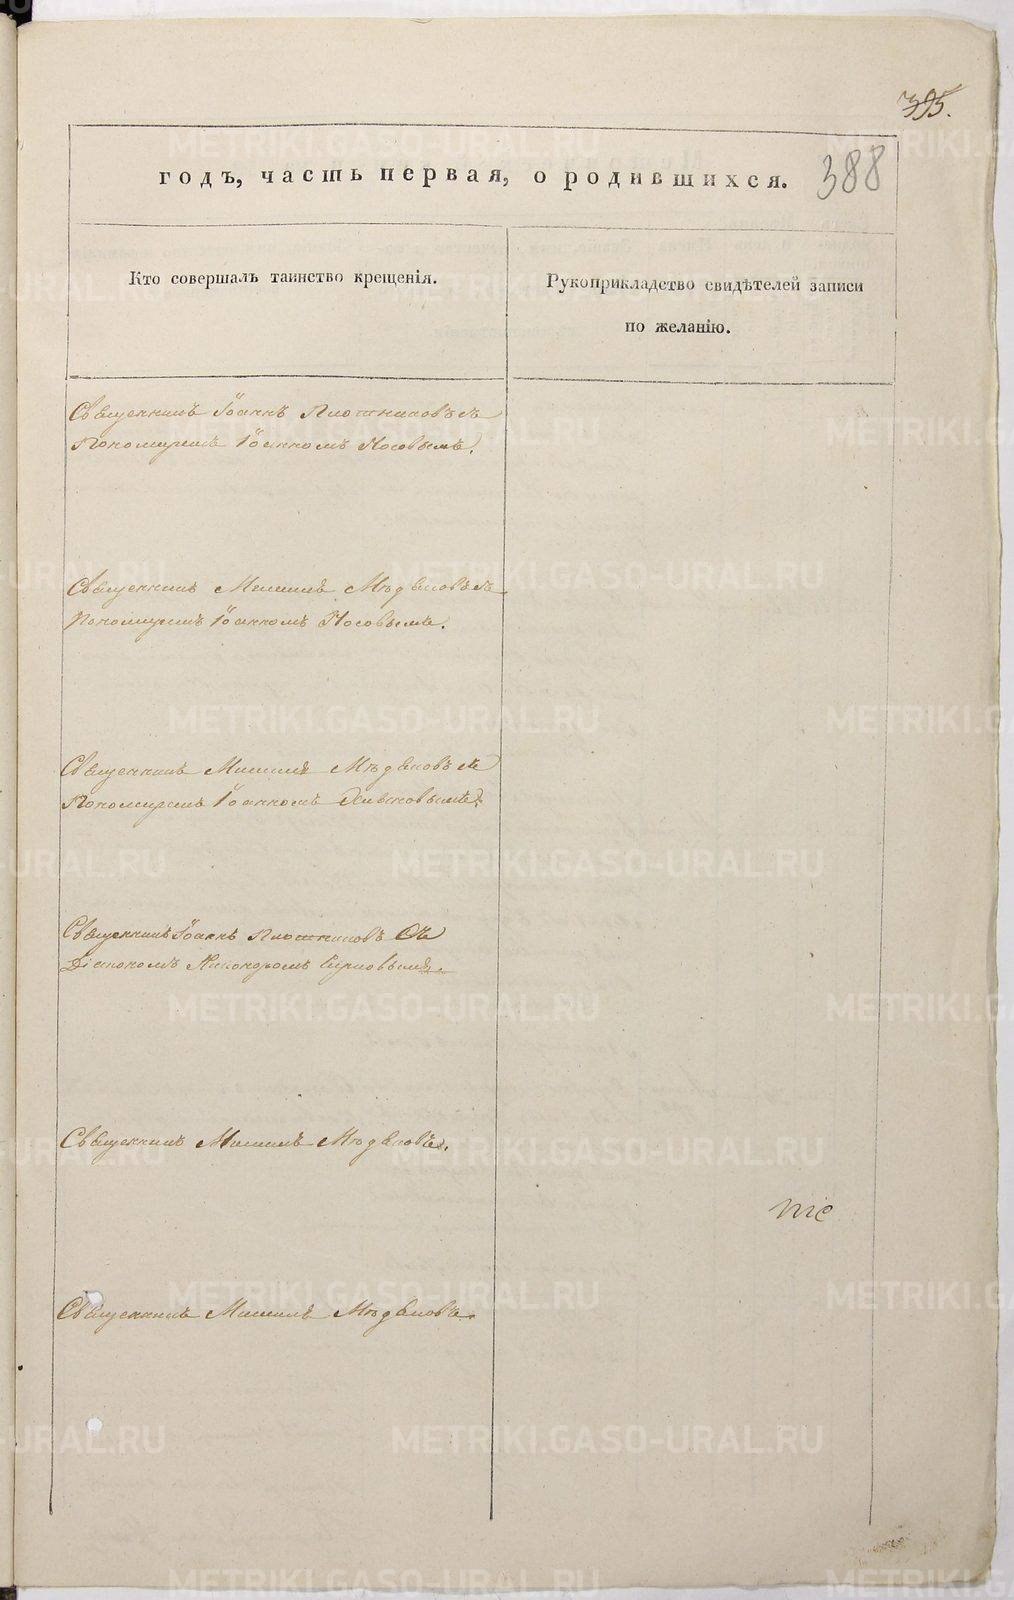 395.
388
годъ, часть первая, о родившихся.
Кто совершалъ таинство крещенія.
Рукоприкладство свидѣтелей записи
по желанію.
Священникъ Іоаннъ Плотниковъ съ
Пономаремъ Іоанномъ Носовымъ.
Священникъ Михаилъ Мѣдвѣдевъ съ
Пономаремъ Іоанномъ Носовымъ.
Священникъ Михаилъ съ
Пономаремъ Іоанномъ
Священникъ Іоаннъ Плотниковъ Съ
Діакономъ Никаноромъ
Священникъ Михаилъ
Священникъ Михаилъ
METRIKI.GASO-URAL.RU